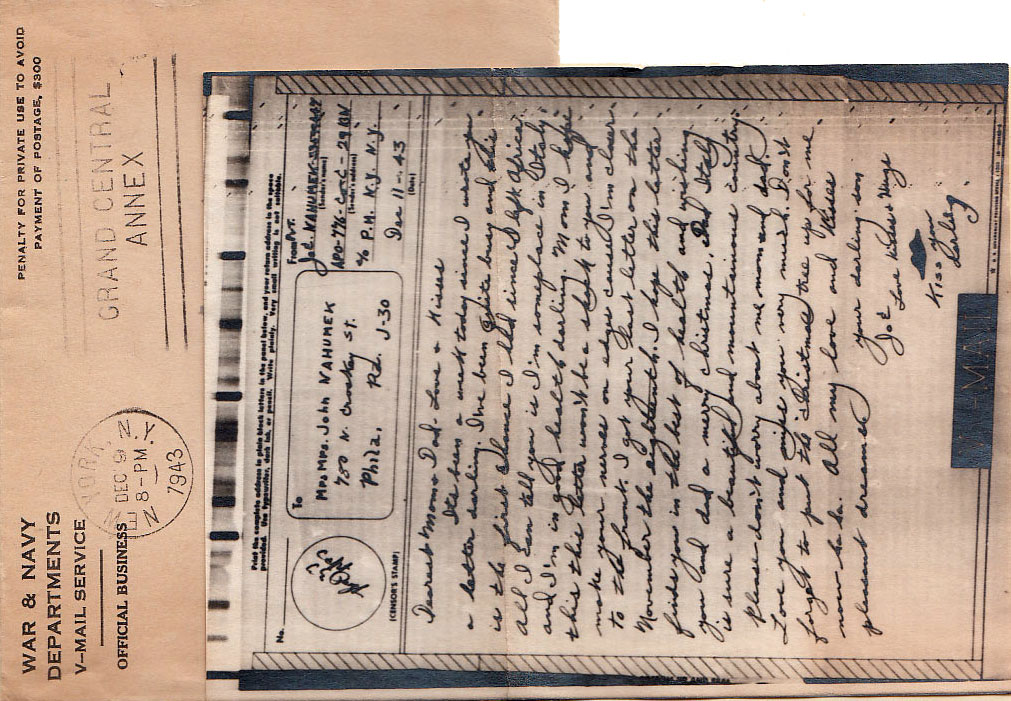 WAR & NAVY
DEPARTMENTS
V-MAIL SERVICE
OFFICIAL BUSINESS
NEW YORK, N.Y.
DEC 9
8-PM
1943
GRAND CENTRAL
ANNEX
PENALTY FOR PRIVATE USE TO AVOID
PAYMENT OF POSTAGE, $300
Print the complete address in plain block letters in the panel below, and your return address in the space
provided. Use typewriter, dark ink, or pencil. Write plainly. Very small writing is not suitable.
No.
(CENSOR'S STAMP)
To
MR & MRS. John VAHUMEK
780 N. Croskey St.
Phila, Pa. J-30
From Pvt.
Joe VAHUMEK
(Sender's name)
APO-776-Co-C-29
(Sender's address)
% P.M. N.Y. N.Y.
Dec 11-43
(Date)
Dearest Mom & Dad - Love & Kisses
Its been a week today since I wrote you
a letter darling. I've been quite busy and this
is the first chance I had since I left Africa
all I can tell you is I'm someplace in Italy
and I'm in good health darling. Mom I hope
this this letter won't be a shock to you and
make your nerves on edge cause I'm closer
to the front. I got your last letter on the
November the eighteenth. I hope this letter
finds you in the best of health and wishing
you and dad a merry christmas. Dad Italy
is sure a beautiful and mountainous country
Please don't worry about me mom and dad.
Love you and miss you very much. Don't
forget to put the christmas tree up for me.
now. All my love and Kisses
pleasant dreams
your darling son
Joe Love Kisses & Hugs
Kiss you
V-MAIL